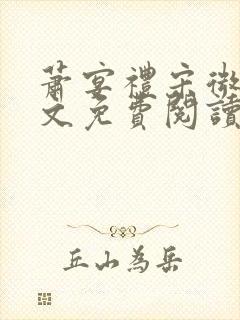 蕭宴禮宋微
文免費閱讀
丘山為岳